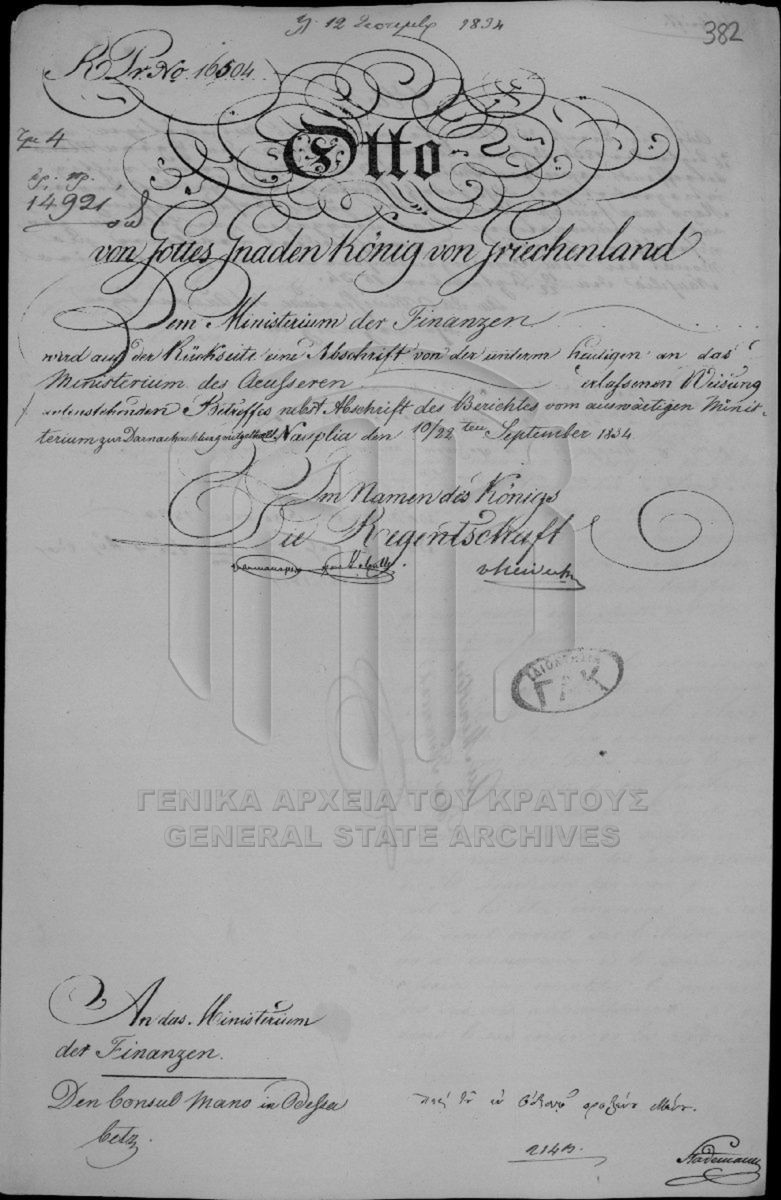 12 1834
382
R Pr. No 16504.
4
14921
Otto
von Gottes Gnaden König von Griechenland
Dem Ministerium der Finanzen
wird auf der Rückseite eine Abschrift von der unterm heutigen an das
Ministerium des Aeusseren erlassenen Weisung
untenstehenden Betreffes nebst Abschrift des Berichtes vom auswärtigen Minis-
terium zur Darnachachtung mitgetheilt. Nauplia den 10/22 ten September 1834
Im Namen des Königs
Die Regentschaft
ΓΑΚ
ΓΕΝΙΚΑ ΑΡΧΕΙΑ ΤΟΥ ΚΡΑΤΟΥΣ
GENERAL STATE ARCHIVES
An das Ministerium
der Finanzen.
Den Consul Mano in Odessa
betr.
Stademann